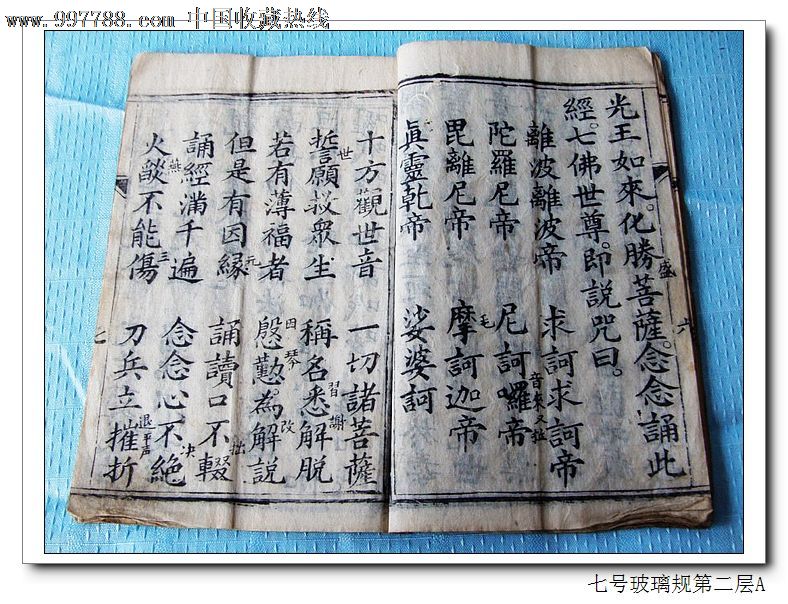 www.997788.com 中国收藏热线
光王如來。化勝菩薩。念念誦此
經。七佛世尊。即説咒曰。
離波離波帝 求訶求訶帝
陀羅尼帝 尼訶囉帝
毘離尼帝 摩訶迦帝
眞靈乾帝 娑婆訶
十方觀世音 一切諸菩薩
誓願救衆生 稱名悉解脱
若有薄福者 慇懃為解説
但是有因緣 誦讀口不輟
誦經滿千遍 念念心不絶
火燄不能傷 刀兵立摧折
盛
六
音來又拉
毛
世
習謝
四琴
改
元
拙
燕
三
决
退平声
山
七
七号玻璃规第二层A